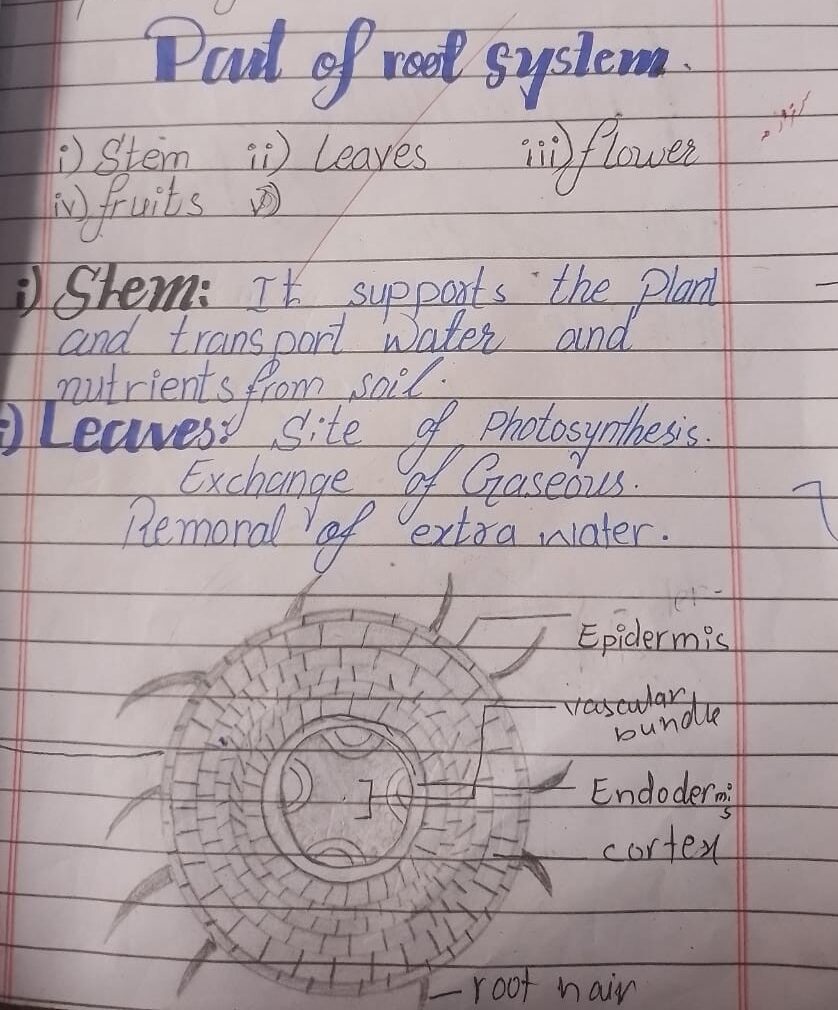 Part of root system.
i) Stem ii) Leaves iii) flower
iv) fruits v)
i) Stem: It supports the Plant
and transport Water and
nutrients from soil.
i) Leaves: Site of Photosynthesis.
Exchange of Gaseous.
Removal of extra water.
Epidermis
vascular
bundle
Endodermis
cortex
root hair